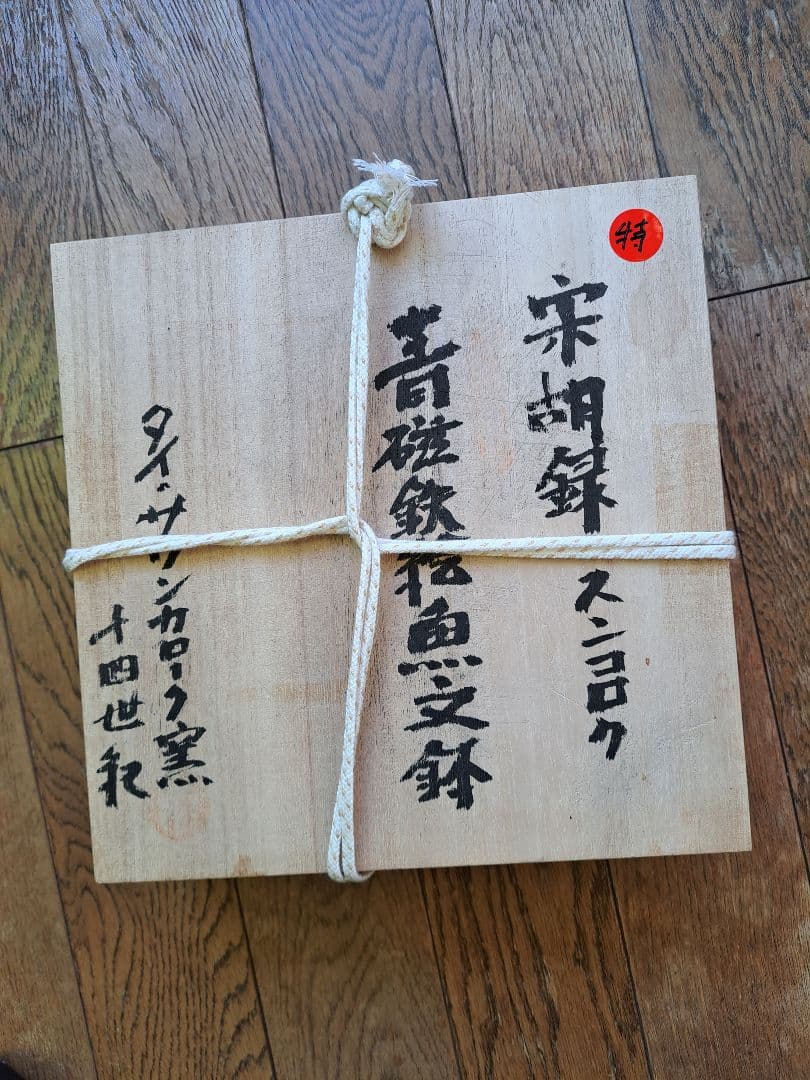 特
宋胡録 スンコロク
青磁鉄絵魚文鉢
タイ・サワンカローク窯
十四世紀